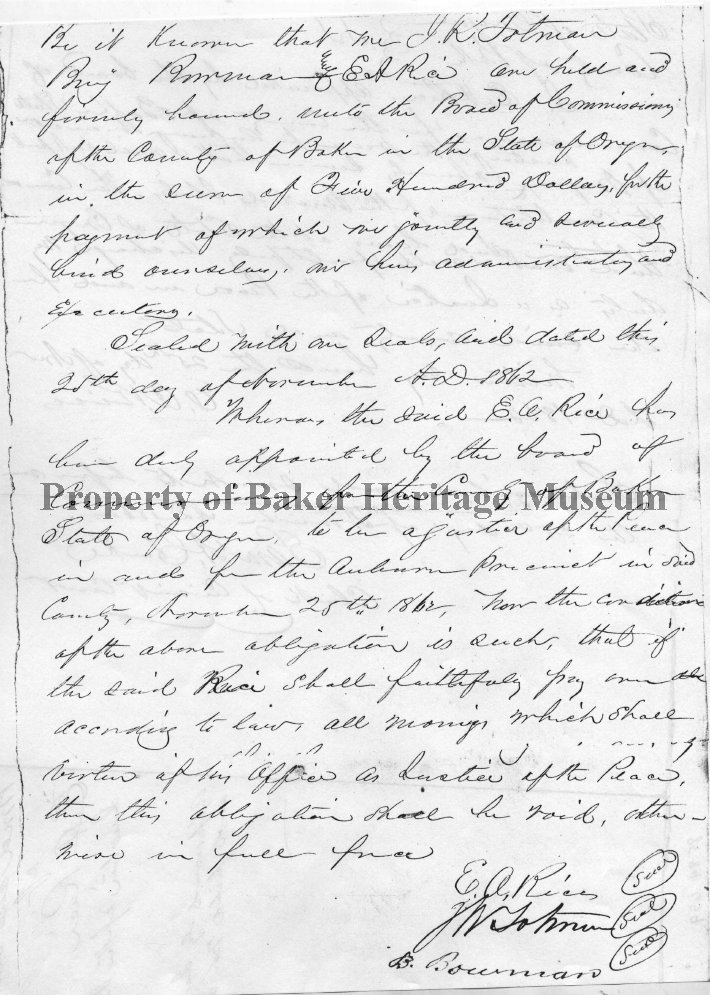 Be it Known that we J. K. Totman
Benj Bowman & E A Rice are held and
firmly bound unto the Board of Commissioners
of the County of Baker in the State of Oregon,
in the sum of Five Hundred Dollars, for the
payment of which we jointly and severally
bind ourselves, our heirs administrators and
Executors.
Sealed with our seals, and dated this
25th day of November A.D. 1862
Whereas the said E. A. Rice has
been duly appointed by the board of
for the County of Baker
Property of Baker Heritage Museum
State of Oregon, to be a Justice of the Peace
in and for the Auburn Precinct in said
County, November 25th 1862, Now the condition
of the above obligation is such, that if
the said Rice shall faithfuly pay over
according to law, all moneys which shall
virtue of his Office as Justice of the Peace,
then this obligation shall be void, other-
wise in full force
E. A. Rice Seal
Totman Seal
B. Bowman Seal